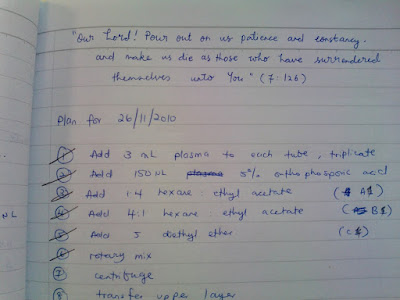 "Our Lord! Pour out on us patience and constancy.
and make us die as those who have surrendered
themselves unto You" (7:126)
Plan for 26/11/2010
① Add 3 mL plasma to each tube, triplicate
② Add 150 uL plasma 5% orthophosporic acid
③ Add 1:4 hexane: ethyl acetate (A1)
④ Add 4:1 hexane: ethyl acetate (B1)
⑤ Add 5 diethyl ether (C1)
⑥ rotary mix
⑦ centrifuge
⑧ transfer upper layer